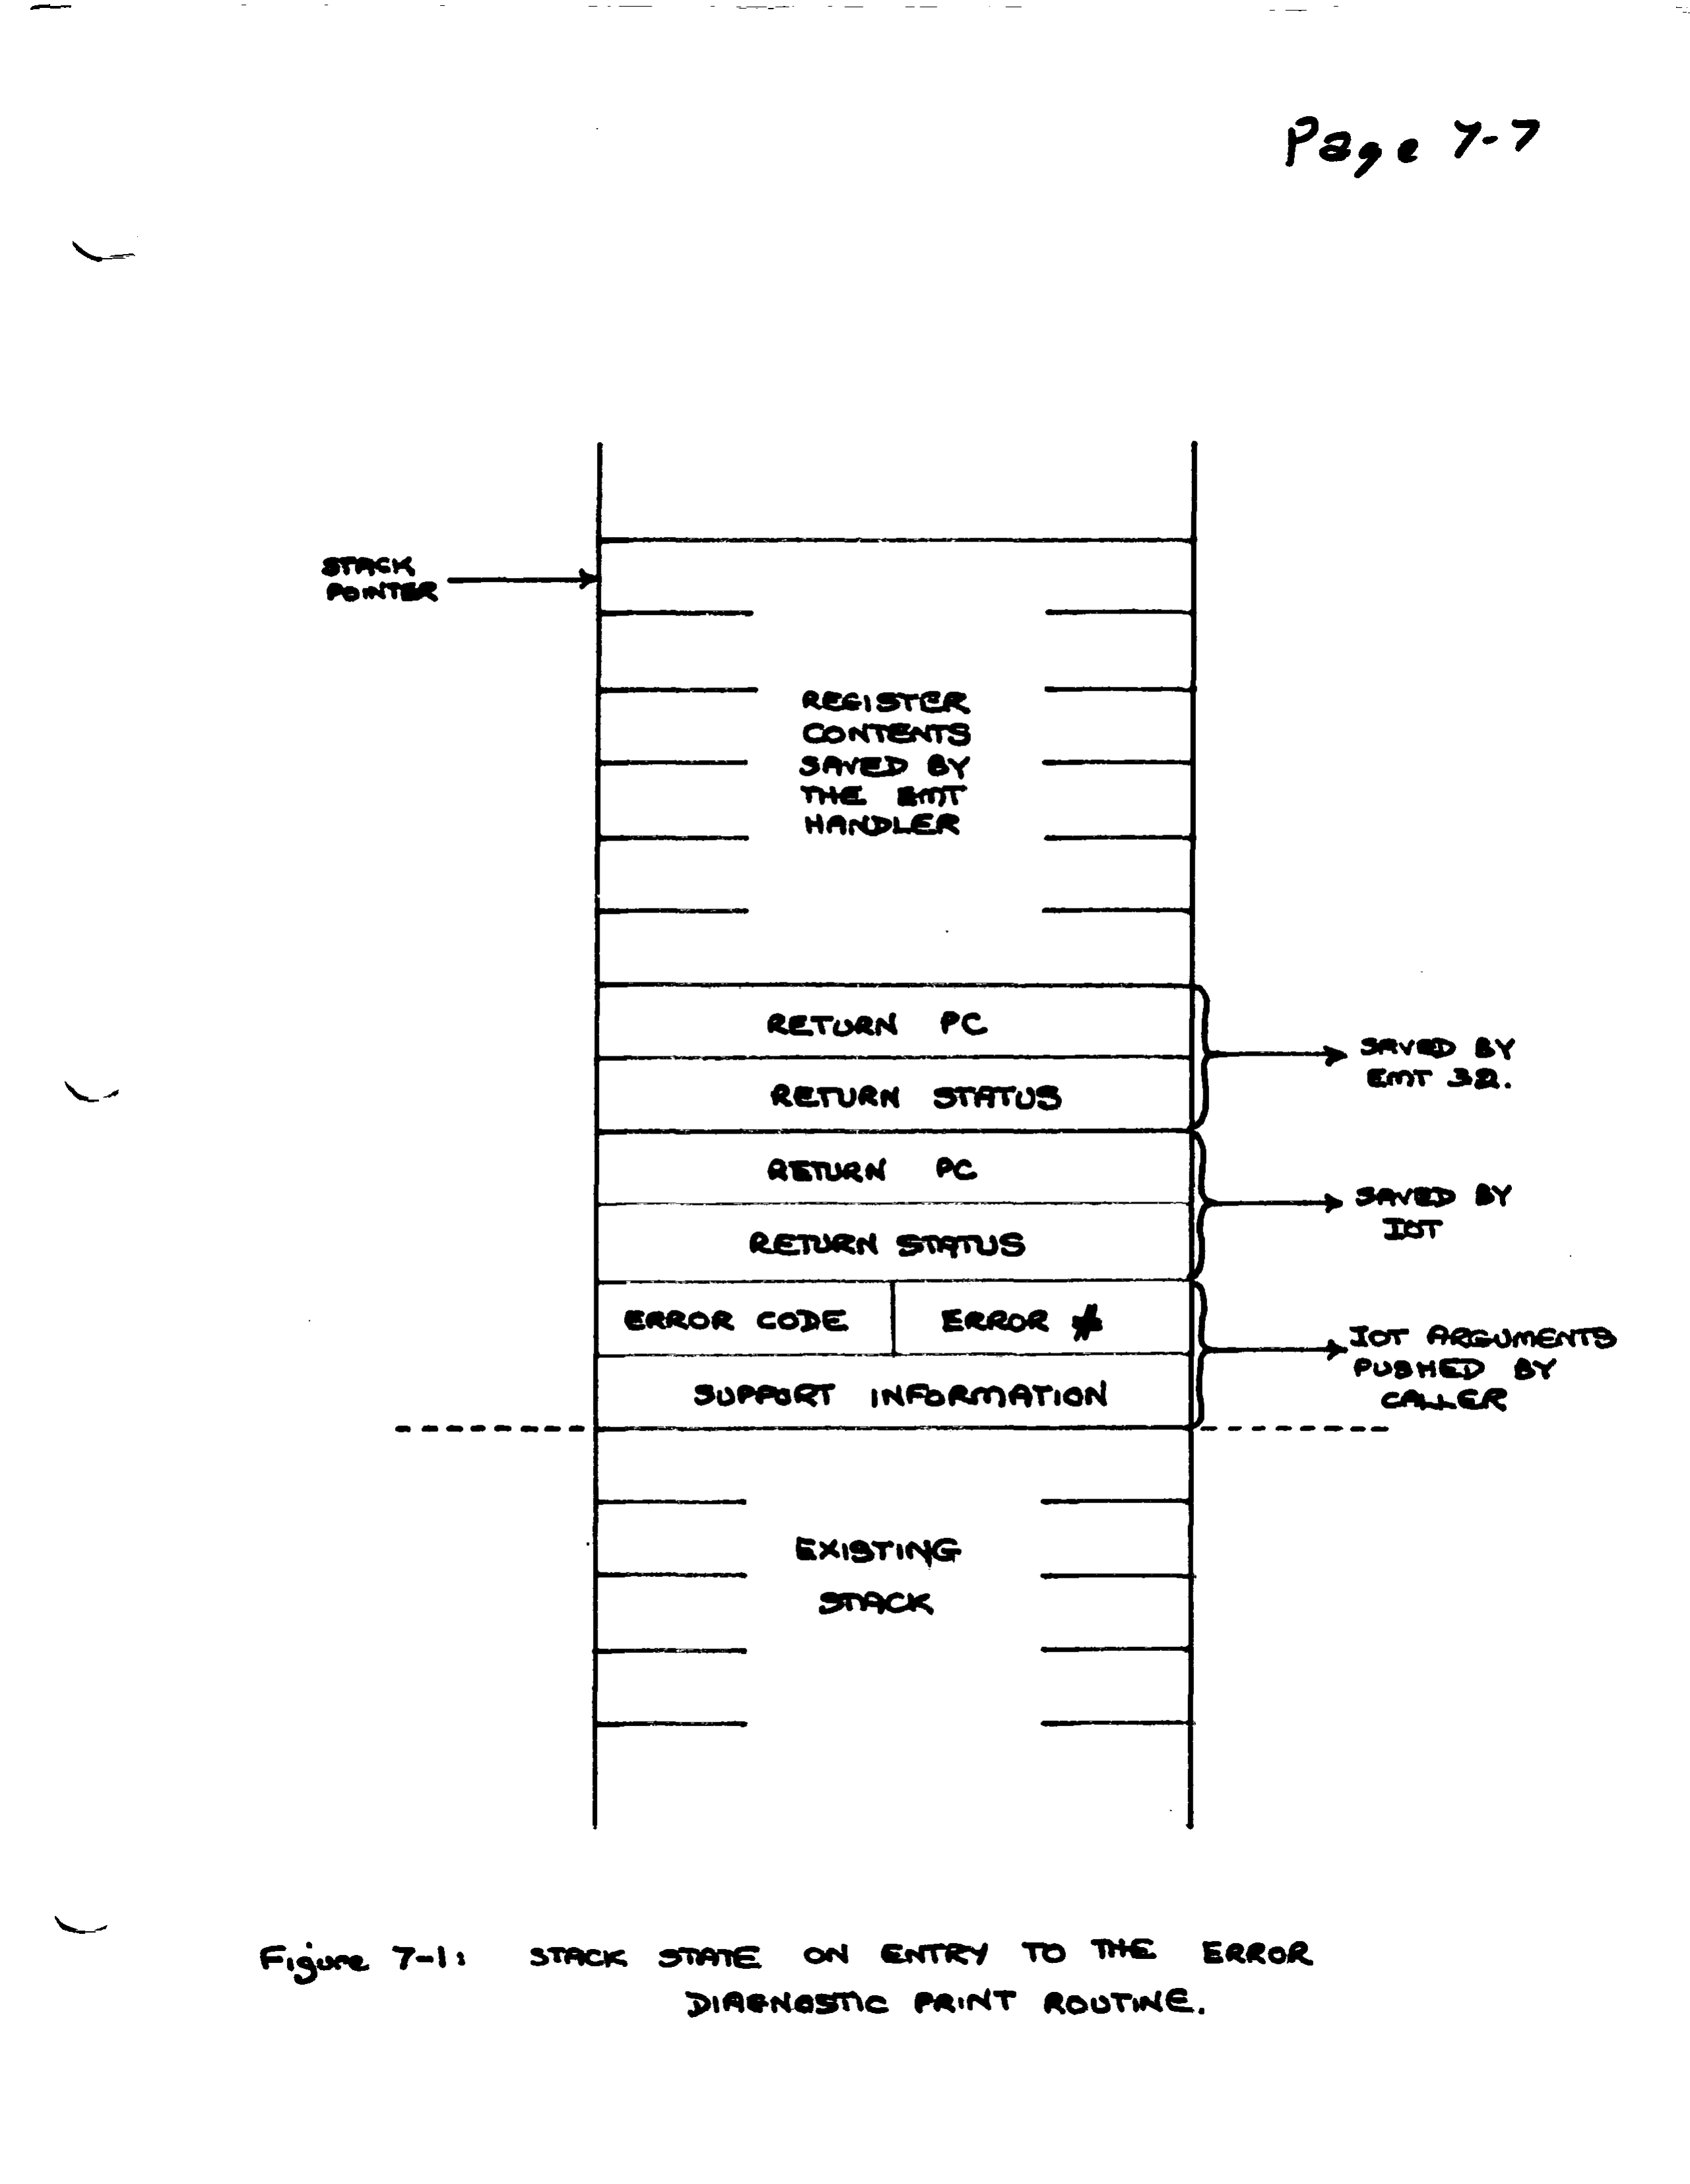 Page 7-7
STACK
POINTER
REGISTER
CONTENTS
SAVED BY
THE EMT
HANDLER
RETURN PC
RETURN STATUS
SAVED BY
EMT 32.
RETURN PC
RETURN STATUS
SAVED BY
IOT
ERROR CODE ERROR #
SUPPORT INFORMATION
IOT ARGUMENTS
PUSHED BY
CALLER
EXISTING
STACK
Figure 7-1: STACK STATE ON ENTRY TO THE ERROR
DIAGNOSTIC PRINT ROUTINE.